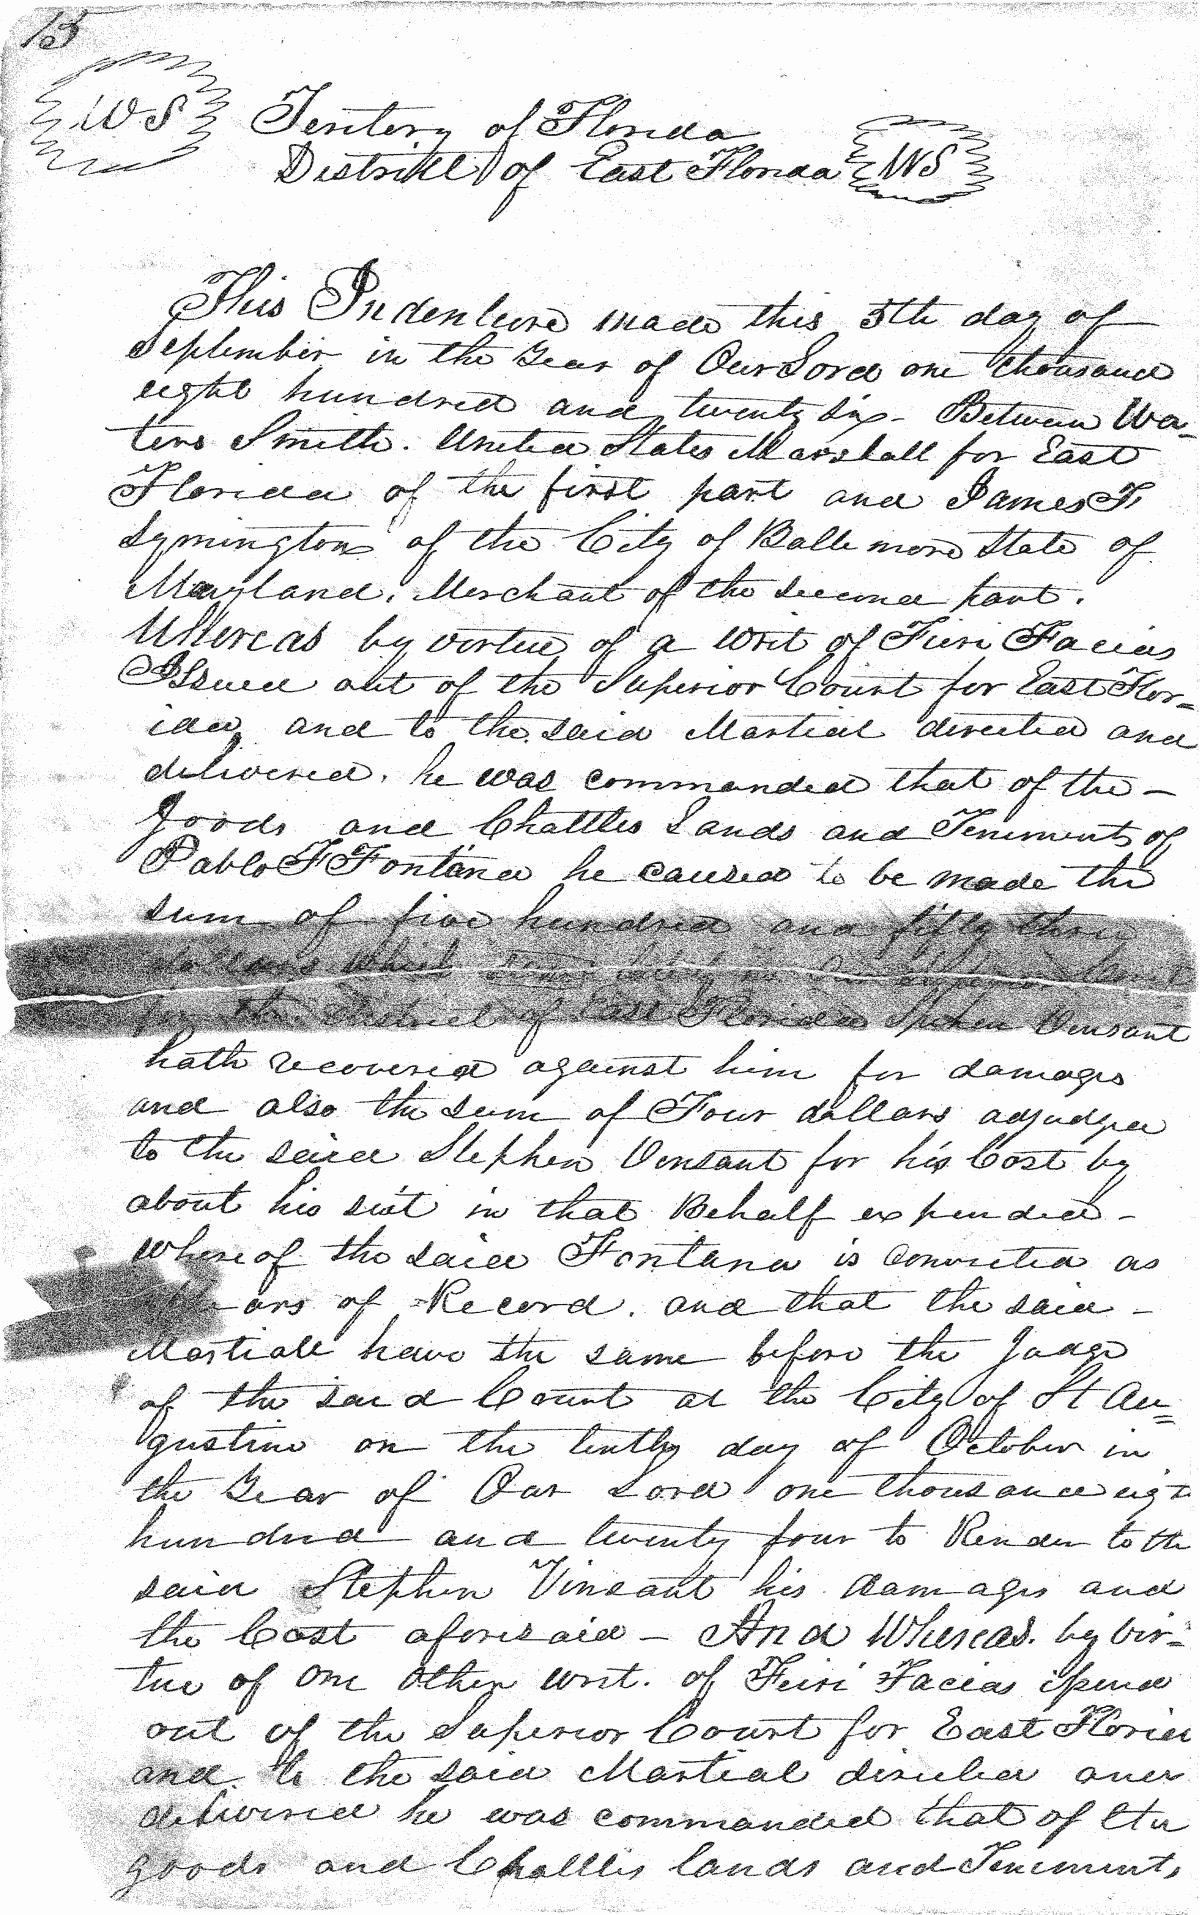 15
WS Teritory of Florida
District of East Florida WS
This Indenture made this 5th day of
September in the Year of Our Lord one thousand
eight hundred and twenty six - Between Wa-
ters Smith. United States Marshall for East
Florida of the first part and James F
Symington of the City of Baltimore State of
Maryland. Merchant of the second part.
Whereas by virtue of a writ of Fieri Facias
Issued out of the Superior Court for East Flor=
ida, and to the said Martial directed and
delivered. he was commanded that of the -
goods and Chattles Lands and Teniments of
Pablo F Fontana he caused to be made the
sum of five hundred and fifty three
dollars which lately in Our Superior Court
for the District of East Florida Stephen Vensant
hath recovered against him for damages
and also the sum of Four dollars adjudged
to the said Stephen Vensant for his Cost by
about his suit in that Behalf expended -
whereof the said Fontana is Convicted as
ars of Record. and that the said -
Martiall have the same before the Judge
of the said Court at the City of St Au=
gustine on the tenth day of October in
the Year of Our Lord one thousand eigt
hundred and twenty four to Render to the
said Stephen Vinsant his damages and
the Cost aforesaid - And Whereas. by vir=
tue of one other writ. of Feiri Facias issued
out of the Superior Court for East Florida
and. to the said Martial directed and
delivered he was commanded that of the
goods and Chattles lands and Teniments